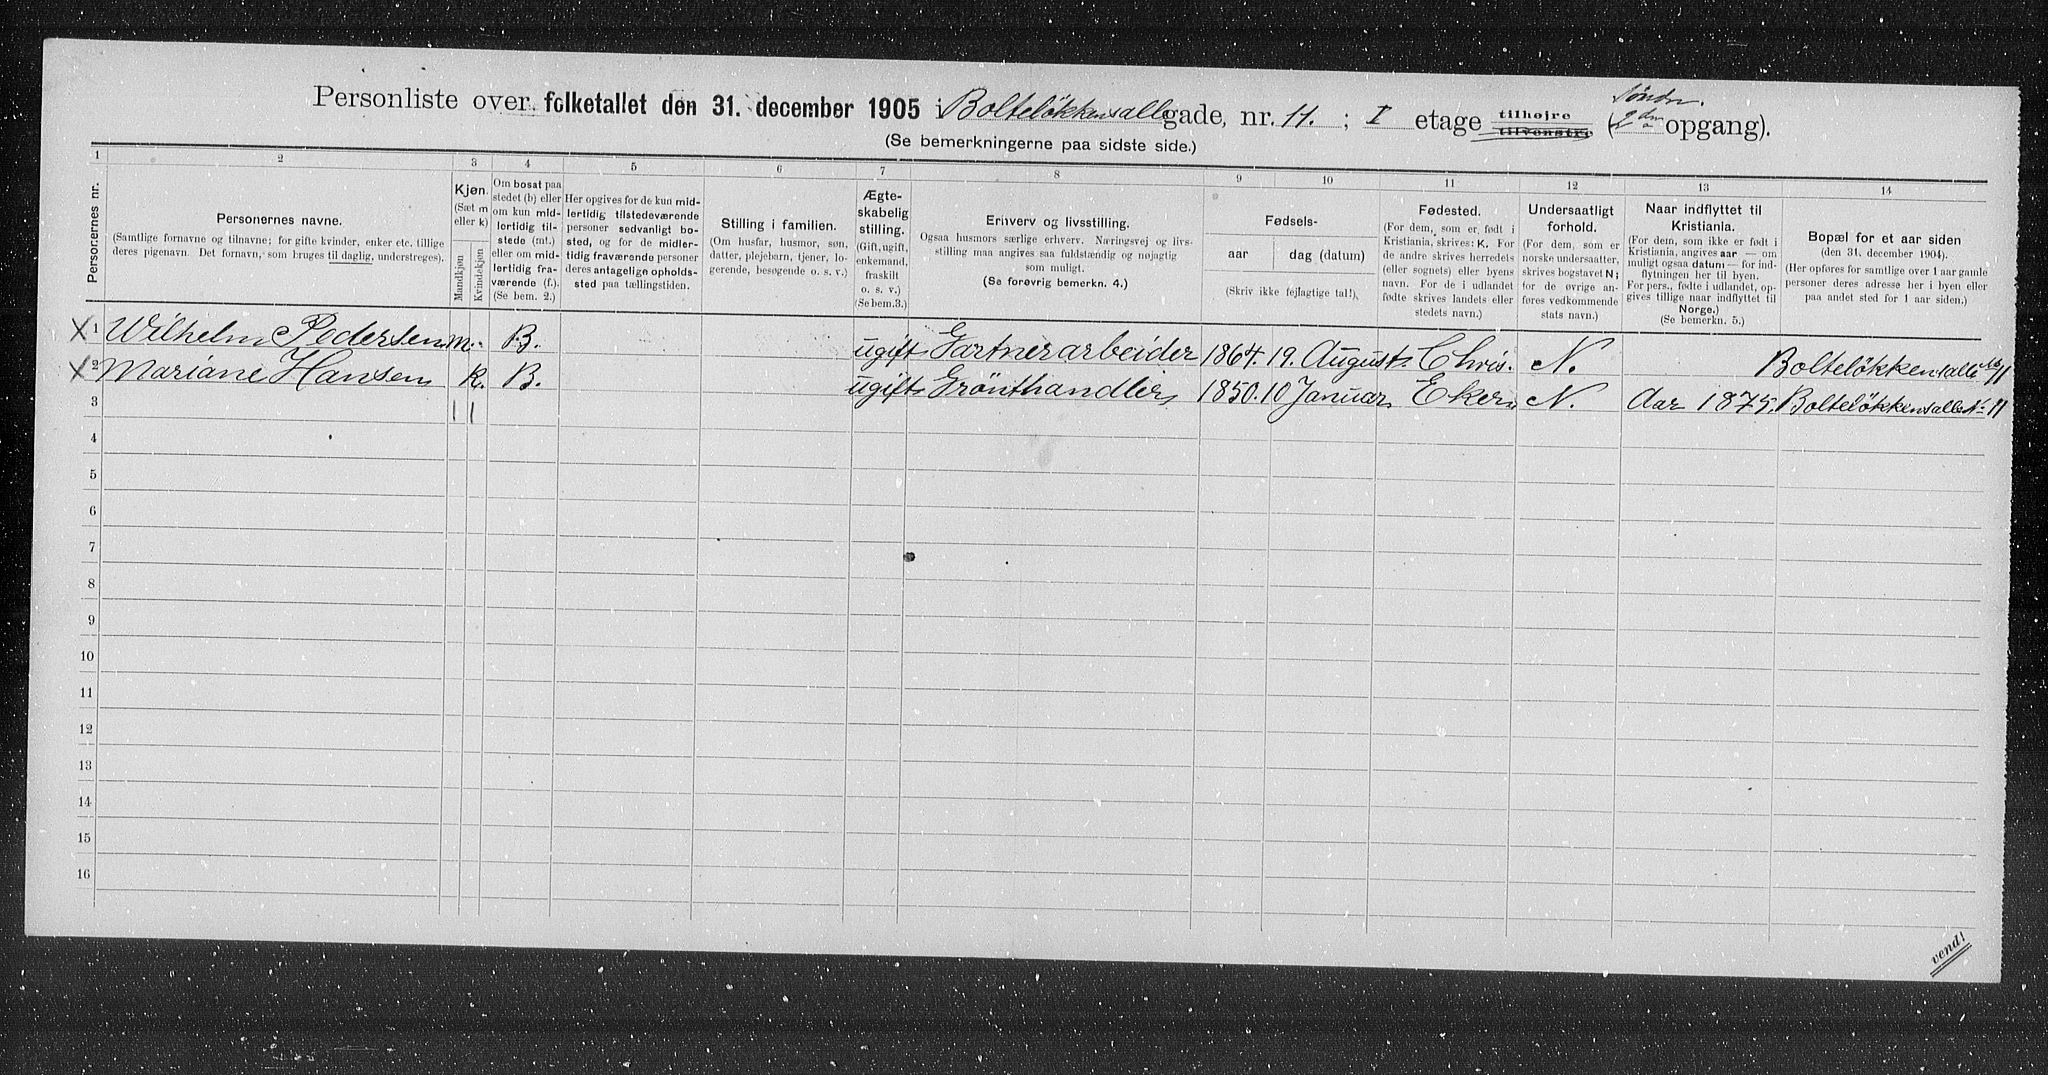 Personliste over folketallet den 31. december 1905 i Bolteløkkensalle gade, nr. 11. ; I etage tilhøjre tilvenstre (Søndre. 2den opgang).
(Se bemerkningerne paa sidste side.)
1 2 3 4 5 6 7 8 9 10 11 12 13 14
Personernes nr.
Personernes navne.
(Samtlige fornavne og tilnavne; for gifte kvinder, enker etc. tillige
deres pigenavn. Det fornavn, som bruges til daglig, understreges).
Kjøn.
(Sæt m
eller k)
Mandkjøn
Kvindekjøn
Om bosat paa
stedet (b) eller
om kun mid-
lertidig til-
stede (mt.)
eller om mid-
lertidig fra-
værende (f.)
(Se bem. 2.)
Her opgives for de kun mid-
lertidig tilstedeværende
personer sedvanligt bo-
sted, og for de midler-
tidig fraværende personer
deres antagelige opholds-
sted paa tællingstiden.
Stilling i familien.
(Om husfar, husmor, søn,
datter, plejebarn, tjener, lo-
gerende, besøgende o. s. v.)
Ægte-
skabelig
stilling.
(Gift, ugift,
enkemand,
fraskilt
o. s. v.)
(Se bem. 3.)
Erhverv og livsstilling.
Ogsaa husmors særlige erhverv. Næringsvej og livs-
stilling maa angives saa fuldstændig og nøjagtig
som muligt.
(Se forøvrig bemerkn. 4.)
Fødsels-
aar
dag (datum)
(Skriv ikke fejlagtige tal!).
Fødested.
(For dem, som er født i
Kristiania, skrives: K. For
de andre skrives herredets
(eller sognets) eller byens
navn. For de i udlandet
fødte skrives landets eller
stedets navn.)
Undersaatligt
forhold.
(For dem, som er
norske undersaatter,
skrives bogstavet N;
for de øvrige an-
føres vedkommende
stats navn.)
Naar indflyttet til
Kristiania.
(For dem, som ikke er født i
Kristiania, angives aar — om
muligt ogsaa datum — for ind-
flytningen her til byen.
For pers., fødte i udlandet, op-
gives tillige naar indflyttet til
Norge.)
(Se bemerkn. 5.)
Bopæl for et aar siden
(den 31. december 1904).
(Her opføres for samtlige over 1 aar gamle
personer deres adresse her i byen eller
paa andet sted for 1 aar siden.)
X 1 Wilhelm Pedersen m. B. ugift Gartnerarbeider 1864. 19. August. Chris. N. Bolteløkkensalle No 11
X 2 Mariane Hansen k. B. ugift Grønthandler 1850. 10 Januar Eker N. Aar 1875. Bolteløkkensalle No 11
3 1 1
4
5
6
7
8
9
10
11
12
13
14
15
16
vend!